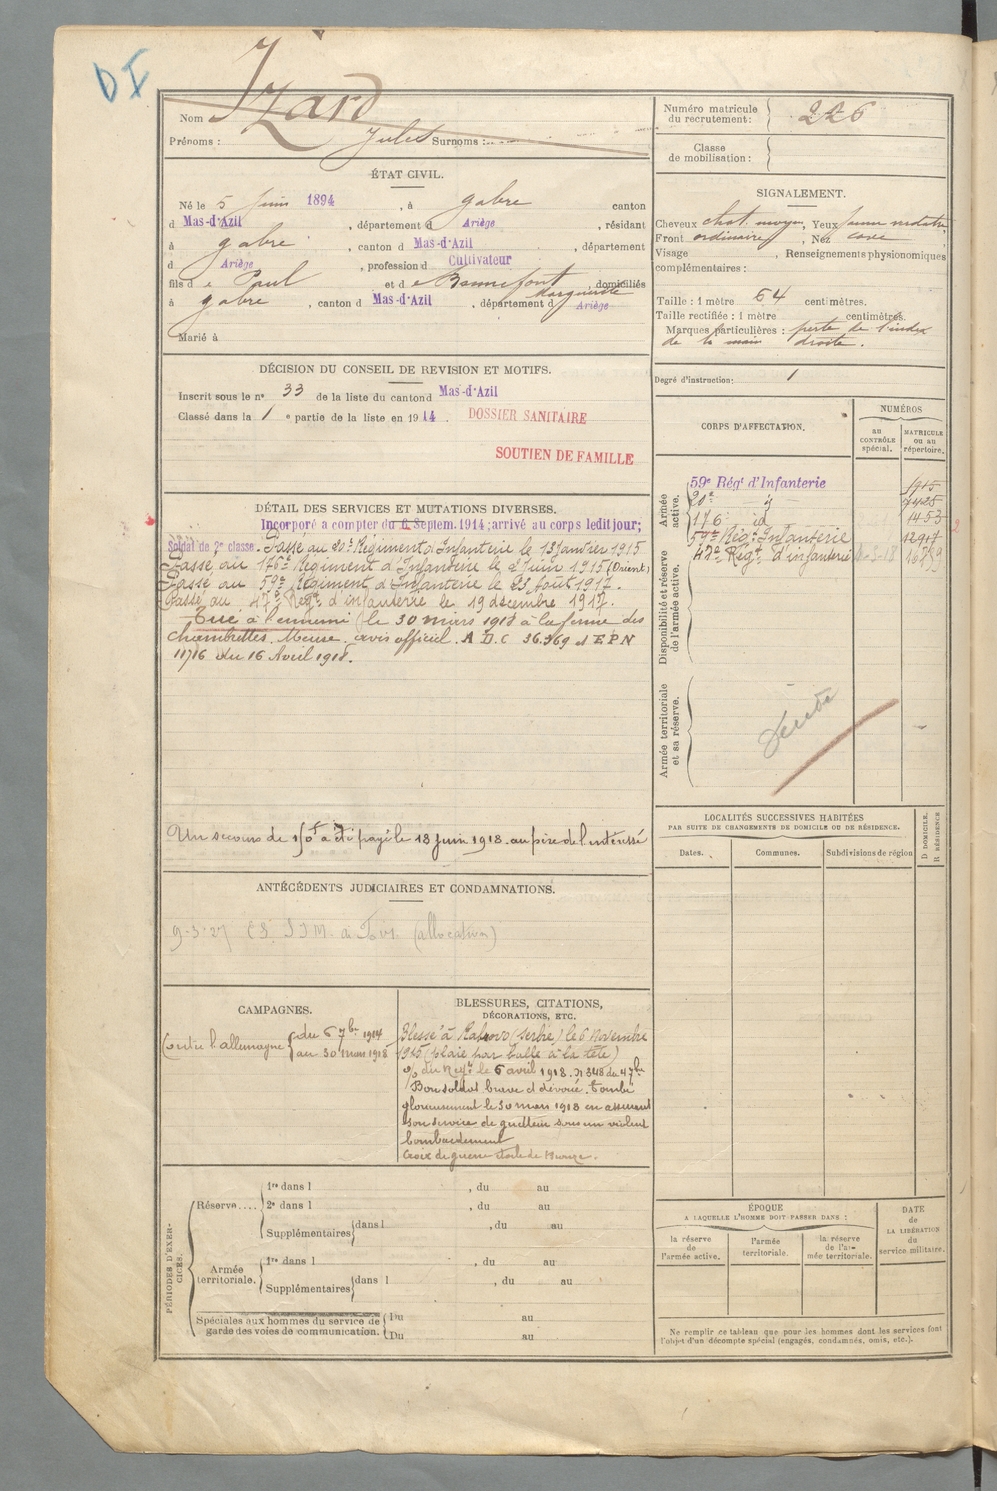 DI
Nom Izard
Prénoms : Jules Surnoms :
ÉTAT CIVIL.
Né le 5 Juin 1894, à Gabre canton
d Mas-d'Azil, département d Ariège, résidant
à Gabre, canton d Mas-d'Azil, département
d Ariège, profession d Cultivateur
fils de Paul et de Bonnefont Marguerite, domiciliés
à Gabre, canton d Mas-d'Azil, département d Ariège
Marié à
DÉCISION DU CONSEIL DE REVISION ET MOTIFS.
Inscrit sous le n° 33 de la liste du canton d Mas-d'Azil
Classé dans la 1e partie de la liste en 1914 DOSSIER SANITAIRE
SOUTIEN DE FAMILLE
DÉTAIL DES SERVICES ET MUTATIONS DIVERSES.
Incorporé a compter du 6 Septem. 1914; arrivé au corps ledit jour;
Soldat de 2e classe. Passé au 20e Régiment d'Infanterie le 13 Janvier 1915
Passé au 176e Régiment d'Infanterie le 2 Juin 1915 (Orient)
Passé au 59e Régiment d'Infanterie le 23 Août 1917.
Passé au 47e Régt d'infanterie le 19 décembre 1917.
Tué à l'ennemi le 30 mars 1918 à la ferme des
Chambrettes. Meuse. avis officiel. A D.C 36.369 et E P N
11716 du 16 Avril 1918.
Un secours de 150f a été payé le 18 juin 1918. au père de l'intéressé
ANTÉCÉDENTS JUDICIAIRES ET CONDAMNATIONS.
9-3-27 (allocation)
CAMPAGNES.
Contre l'allemagne du 6 7bre 1914
au 30 mars 1918
BLESSURES, CITATIONS,
DÉCORATIONS, ETC.
Blessé à (Serbie) le 6 Novembre
1915 (plaie par balle à la tête)
% du Régt le 6 avril 1918. N 348 du 47e
Bon soldat brave et dévoué. tombé
glorieusement le 30 mars 1918 en assurant
son service de guetteur sous un violent
bombardement
Croix de guerre étoile de bronze.
PÉRIODES D'EXERCICES.
Réserve....
1re dans l , du au
2e dans l , du au
Supplémentaires dans l , du au
Armée territoriale.
1re dans l , du au
Supplémentaires dans l , du au
Spéciales aux hommes du service de
garde des voies de communication.
Du au
Du au
Numéro matricule
du recrutement : 226
Classe
de mobilisation :
SIGNALEMENT.
Cheveux chat. moyen, Yeux
Front ordinaire, Nez cave
Visage , Renseignements physionomiques
complémentaires :
Taille : 1 mètre 64 centimètres.
Taille rectifiée : 1 mètre centimètres.
Marques particulières : perte de l'index
de la main droite.
Degré d'instruction : 1
CORPS D'AFFECTATION.
NUMÉROS
au
CONTRÔLE
spécial.
MATRICULE
ou au
répertoire.
Armée active.
59e Régt d'Infanterie
20e id
176 id 1453
59e Régt Infanterie
47e Régt d'infanterie 16799
Disponibilité et réserve
de l'armée active.
Armée territoriale
et sa réserve.
LOCALITÉS SUCCESSIVES HABITÉES
PAR SUITE DE CHANGEMENTS DE DOMICILE OU DE RÉSIDENCE.
Dates.
Communes.
Subdivisions de région
D DOMICILE.
R RÉSIDENCE
ÉPOQUE
A LAQUELLE L'HOMME DOIT PASSER DANS :
la réserve
de
l'armée active.
l'armée
territoriale.
la réserve
de l'ar-
mée territoriale.
DATE
de
LA LIBÉRATION
du
service militaire.
Ne remplir ce tableau que pour les hommes dont les services font
l'objet d'un décompte spécial (engagés, condamnés, omis, etc.).